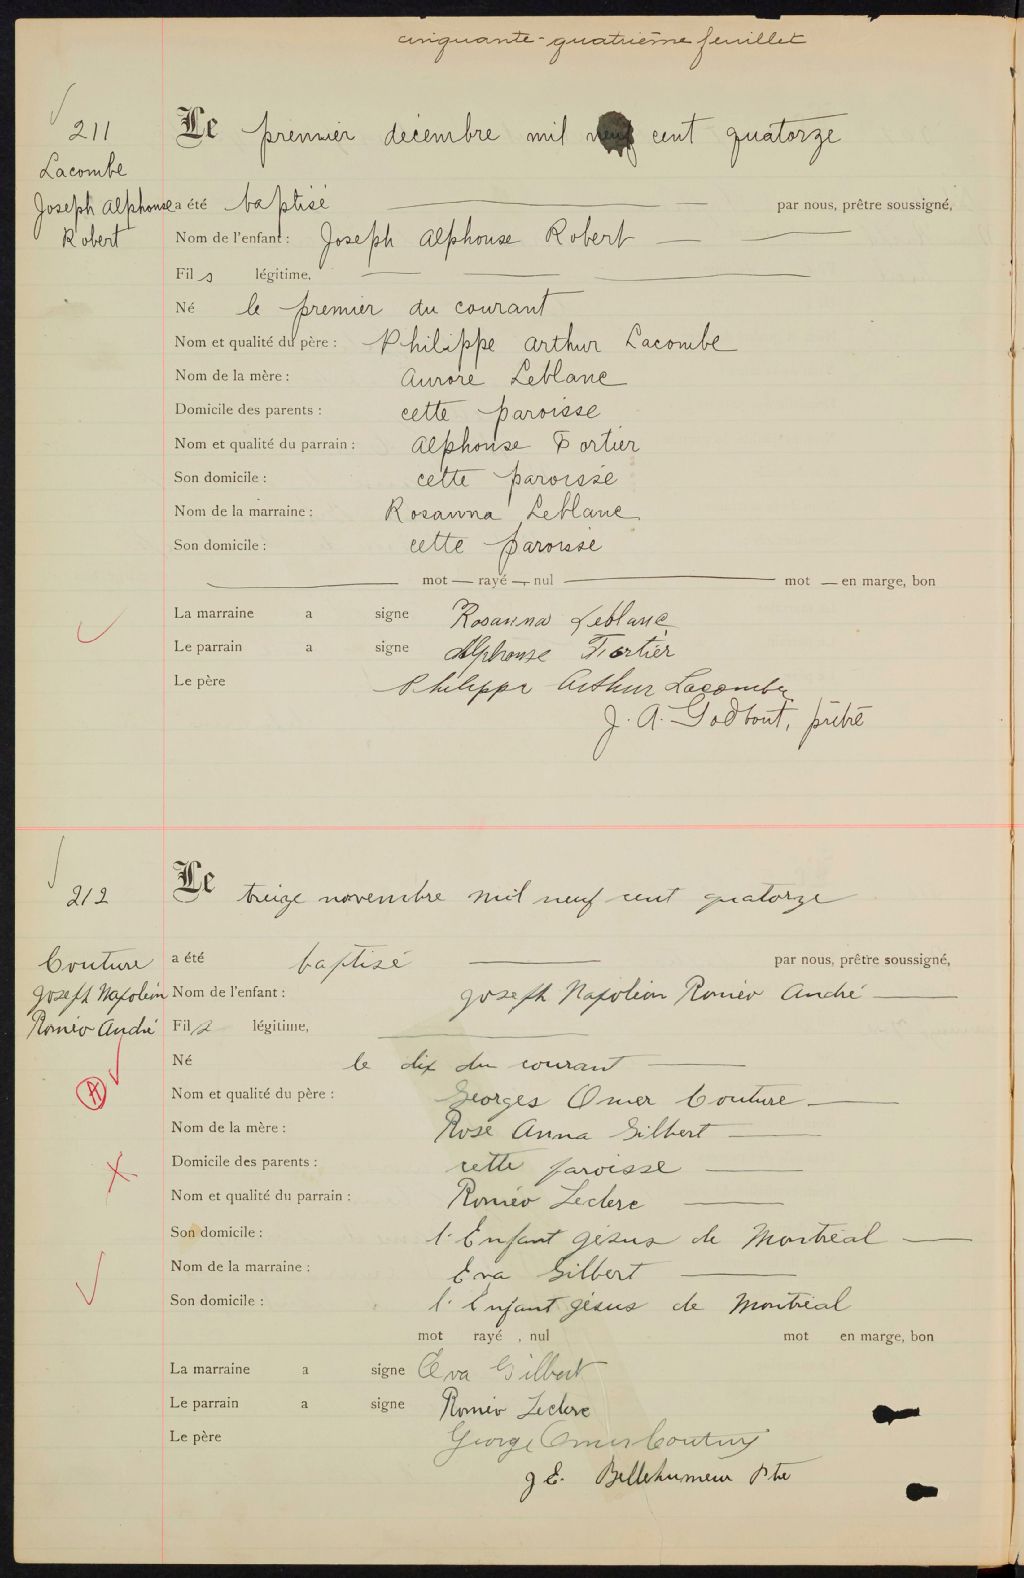 cinquante-quatrième feuillet
211
Lacombe
Joseph Alphonse
Robert
Le premier décembre mil neuf cent quatorze
a été baptisé par nous, prêtre soussigné,
Nom de l'enfant : Joseph Alphonse Robert
Fils légitime,
Né le premier du courant
Nom et qualité du père : Philippe Arthur Lacombe
Nom de la mère : Aurore Leblanc
Domicile des parents : cette paroisse
Nom et qualité du parrain : Alphonse Fortier
Son domicile : cette paroisse
Nom de la marraine : Rosanna Leblanc
Son domicile : cette paroisse
mot — rayé —, nul mot — en marge, bon
La marraine a signe Rosanna Leblanc
Le parrain a signe Alphonse Fortier
Le père Philippe Arthur Lacombe
J. A. Godbout, prêtre
212
Couture
Joseph Napoléon
Roméo André
A
Le treize novembre mil neuf cent quatorze
a été baptisé par nous, prêtre soussigné,
Nom de l'enfant : Joseph Napoléon Roméo André
Fils légitime,
Né le dix du courant
Nom et qualité du père : Georges Omer Couture
Nom de la mère : Rose Anna Gilbert
Domicile des parents : cette paroisse
Nom et qualité du parrain : Roméo Leclerc
Son domicile : l'Enfant Jésus de Montréal
Nom de la marraine : Eva Gilbert
Son domicile : l'Enfant Jésus de Montréal
mot rayé , nul mot en marge, bon
La marraine a signe Eva Gilbert
Le parrain a signe Roméo Leclerc
Le père George Omer Couture
J E. Bellehumeur Ptre